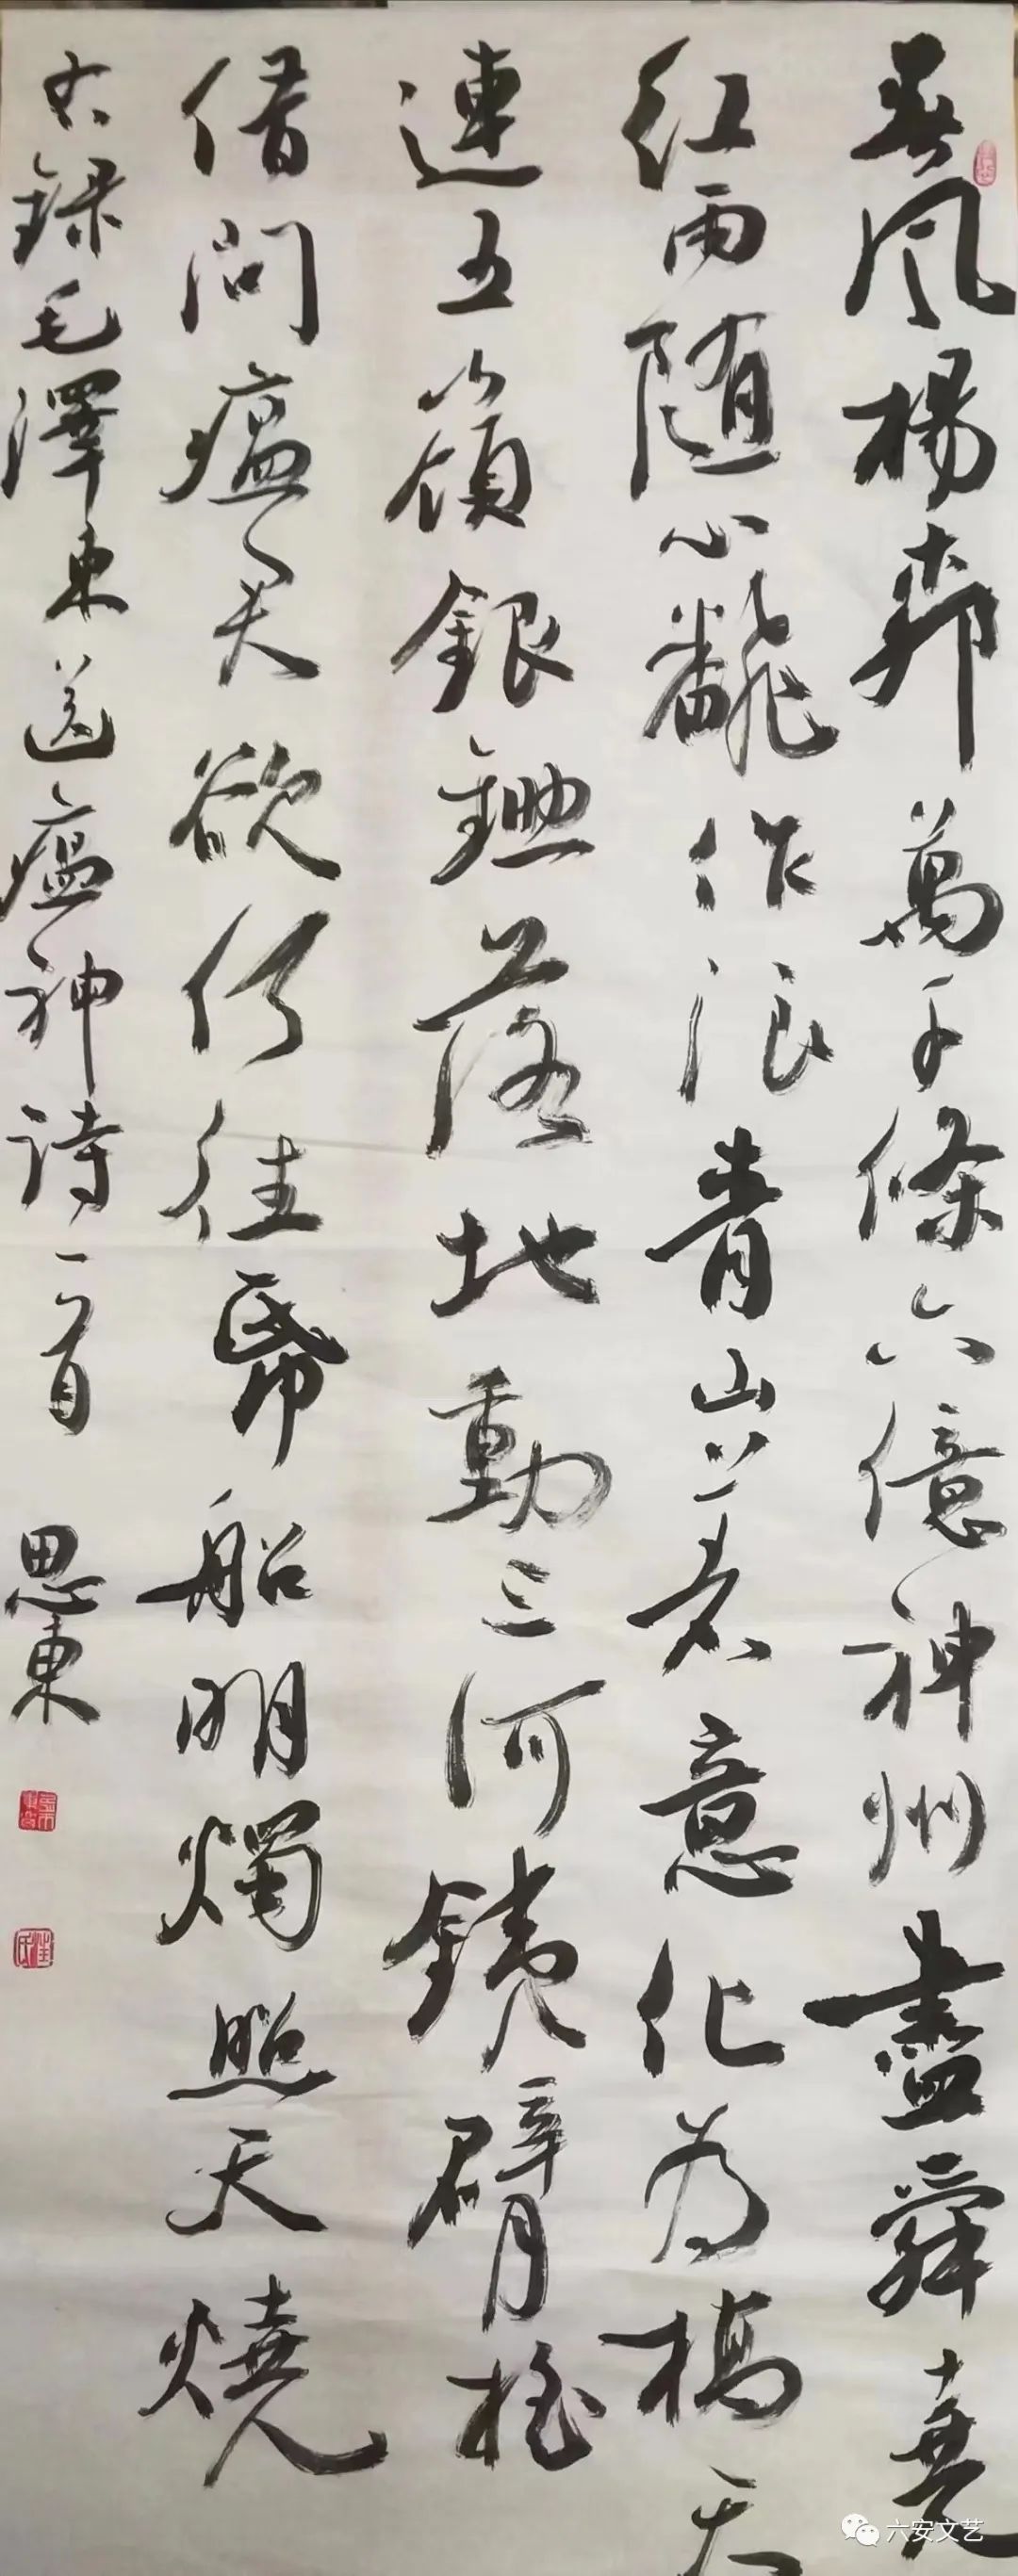 春風楊柳萬千條六億神州盡舜堯
紅雨随心飜作浪青山着意化为橋天
連五嶺銀鋤落地動三河鐵臂摇
借問瘟君欲何往帋船明燭照天燒
右錄毛澤東送瘟神詩一首 思東
六安文艺